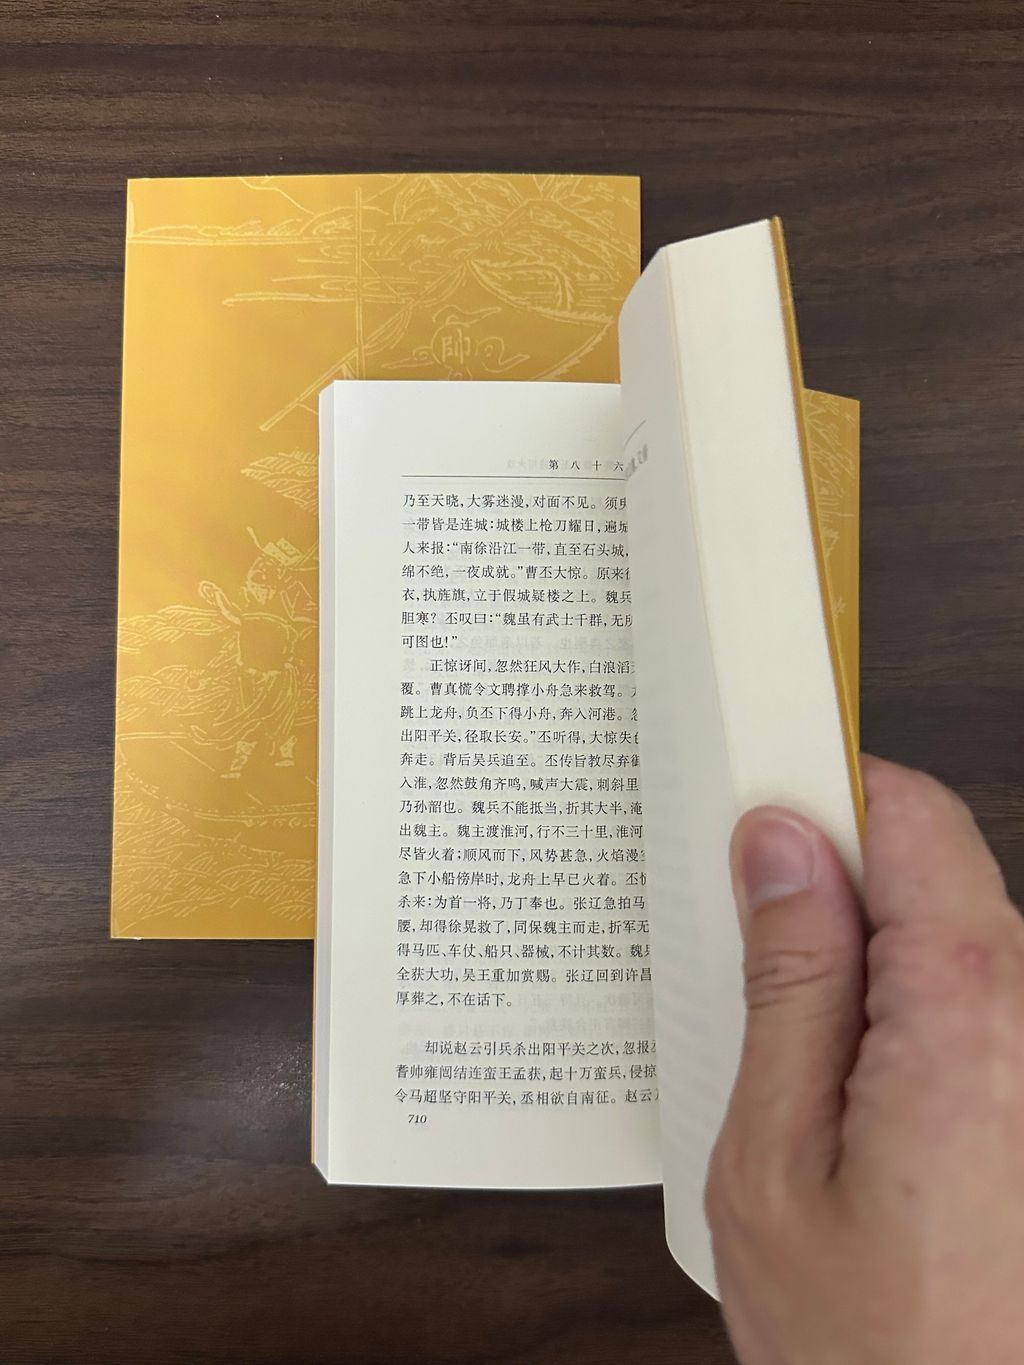 帥
第八十六
乃至天晓，大雾迷漫，对面不见。须
一带皆是连城：城楼上枪刀耀日，遍城
人来报：“南徐沿江一带，直至石头城，
绵不绝，一夜成就。”曹丕大惊。原来
衣，执旌旗，立于假城疑楼之上。魏兵
胆寒？丕叹曰：“魏虽有武士千群，无所
可图也！”
正惊讶间，忽然狂风大作，白浪滔
覆。曹真慌令文聘撑小舟急来救驾。
跳上龙舟，负丕下得小舟，奔入河港。
出阳平关，径取长安。”丕听得，大惊失
奔走。背后吴兵追至。丕传旨教尽弃
入淮，忽然鼓角齐鸣，喊声大震，刺斜里
乃孙韶也。魏兵不能抵当，折其大半，淹
出魏主。魏主渡淮河，行不三十里，淮河
尽皆火着；顺风而下，风势甚急，火焰漫
急下小船傍岸时，龙舟上早已火着。丕
杀来：为首一将，乃丁奉也。张辽急拍马
腰，却得徐晃救了，同保魏主而走，折军无
得马匹、车仗、船只、器械，不计其数。魏
全获大功，吴王重加赏赐。张辽回到许昌
厚葬之，不在话下。
却说赵云引兵杀出阳平关之次，忽报
耆帅雍闿结连蛮王孟获，起十万蛮兵，侵掠
令马超坚守阳平关，丞相欲自南征。赵云
710